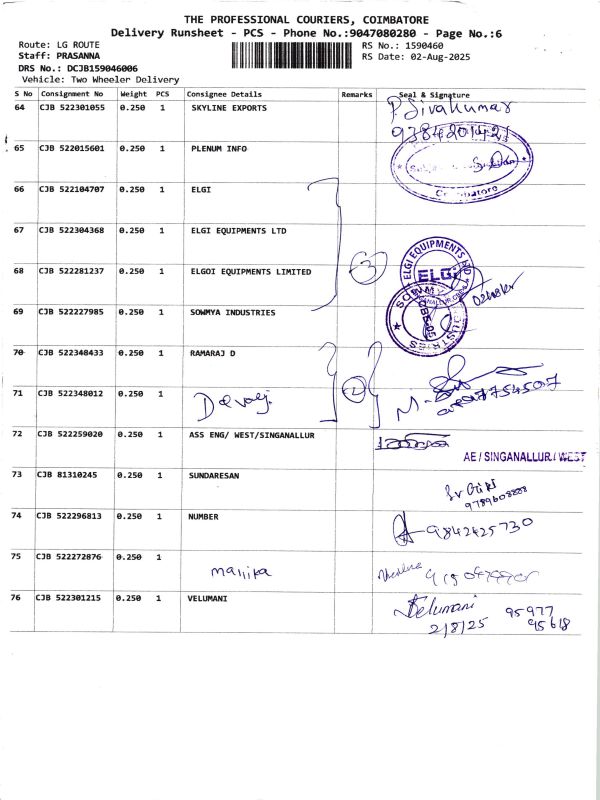 THE PROFESSIONAL COURIERS, COIMBATORE
Delivery Runsheet - PCS - Phone No.:9047080280 - Page No.:6
Route: LG ROUTE
RS No.: 1590460
Staff: PRASANNA
RS Date: 02-Aug-2025
DRS No.: DCJB159046006
Vehicle: Two Wheeler Delivery
S No Consignment No Weight PCS Consignee Details Remarks Seal & Signature
64 CJB 522301055 0.250 1 SKYLINE EXPORTS P. Sivakumar
9384201421
65 CJB 522015601 0.250 1 PLENUM INFO
Coimbatore
66 CJB 522104707 0.250 1 ELGI
67 CJB 522304368 0.250 1 ELGI EQUIPMENTS LTD
ELGI EQUIPMENTS
68 CJB 522281237 0.250 1 ELGOI EQUIPMENTS LIMITED 3 ELGi
69 CJB 522227985 0.250 1 SOWMYA INDUSTRIES
70 CJB 522348433 0.250 1 RAMARAJ D
71 CJB 522348012 0.250 1 Devaraj. 2
72 CJB 522259020 0.250 1 ASS ENG/ WEST/SINGANALLUR
AE / SINGANALLUR / WEST
73 CJB 81310245 0.250 1 SUNDARESAN
74 CJB 522296813 0.250 1 NUMBER 9842425730
75 CJB 522272876 0.250 1 Mallika
76 CJB 522301215 0.250 1 VELUMANI Velumani 95977
2/8/25 95618